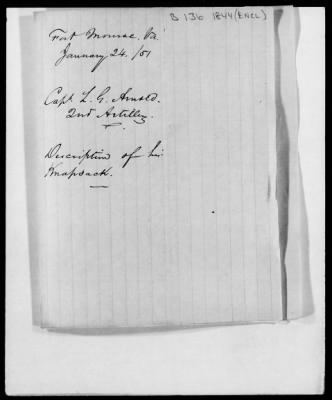 B 136 1844 (ENCL)
Fort Monroe, Va.
January 24. /51
Capt. L. G. Arnold.
2nd Artillery.
Description of his
Knapsack.